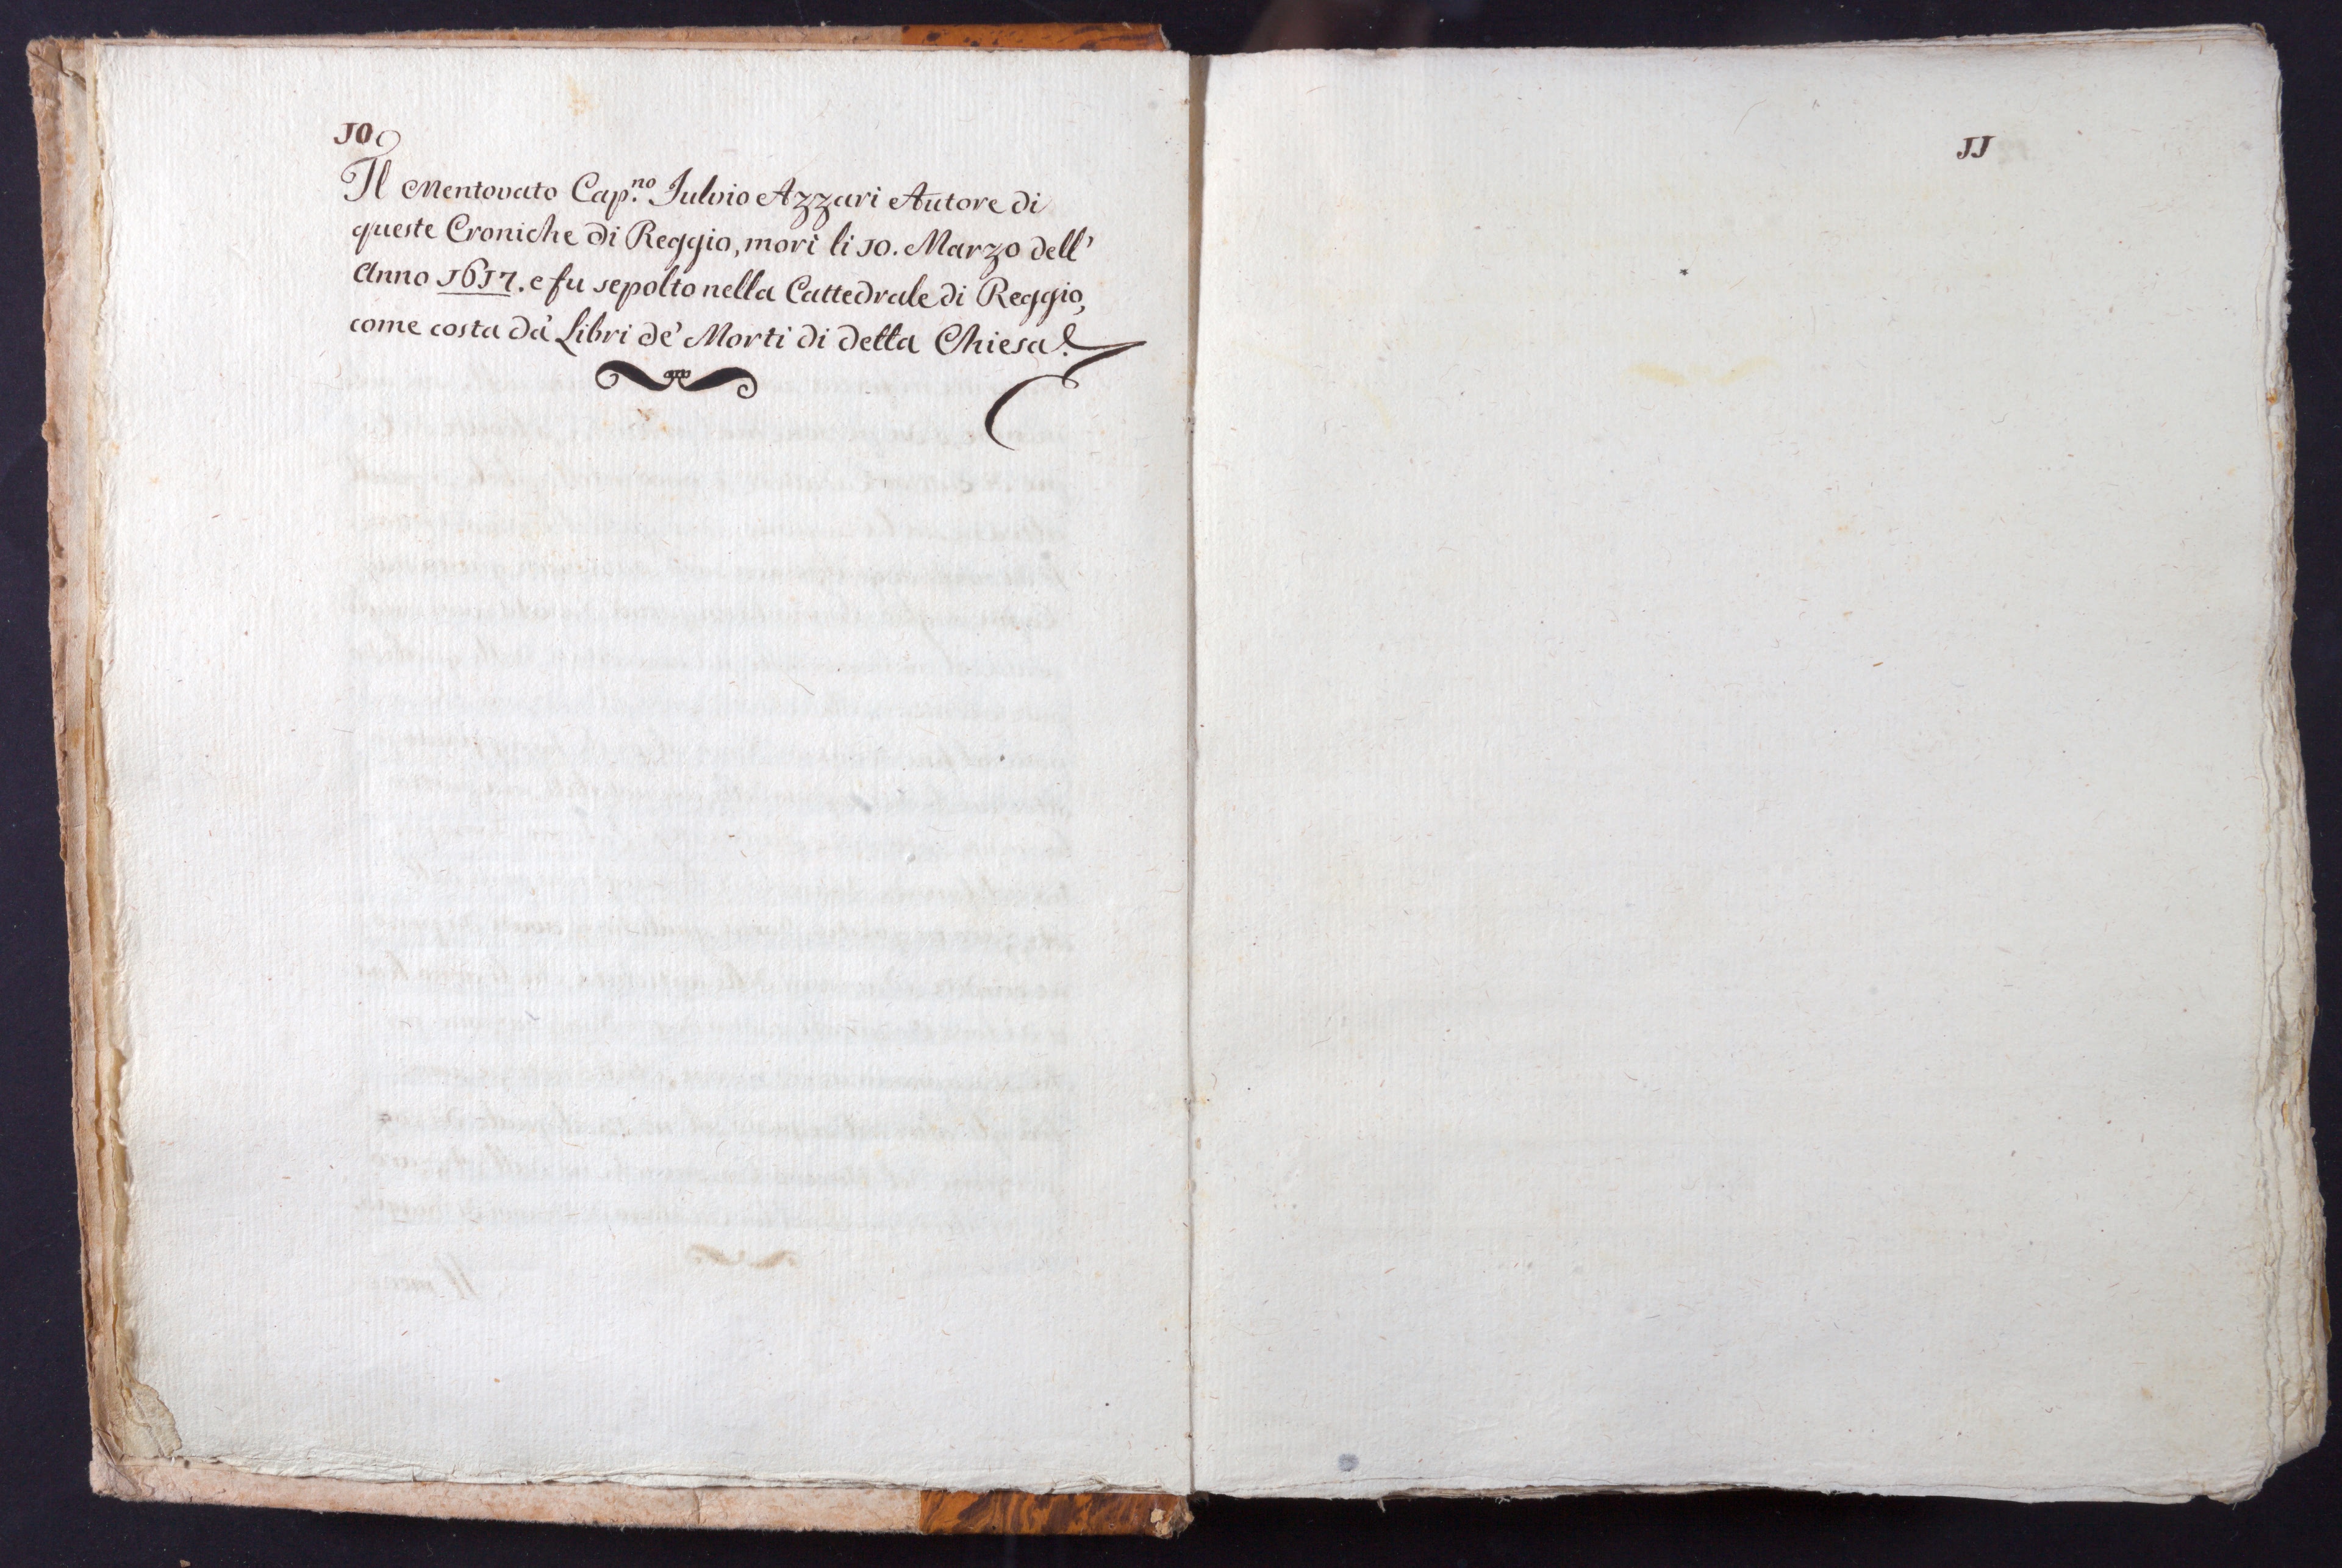 10
Il Mentovato Cap.no Fulvio Azzari Autore di
queste Croniche di Reggio, morì li 10. Marzo dell'
Anno 1617. e fu sepolto nella Cattedrale di Reggio,
come costa dà Libri dè Morti di detta Chiesa.
11